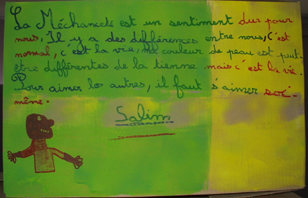 La Méchanceté est un sentiment dur pour
nous, Il y a des différences entre nous, c'est
normal, c'est la vie, la couleur de peau est peut-
être différentes de la tienne mais c'est la vie
Pour aimer les autres, il faut s'aimer soi-
même.
Salim